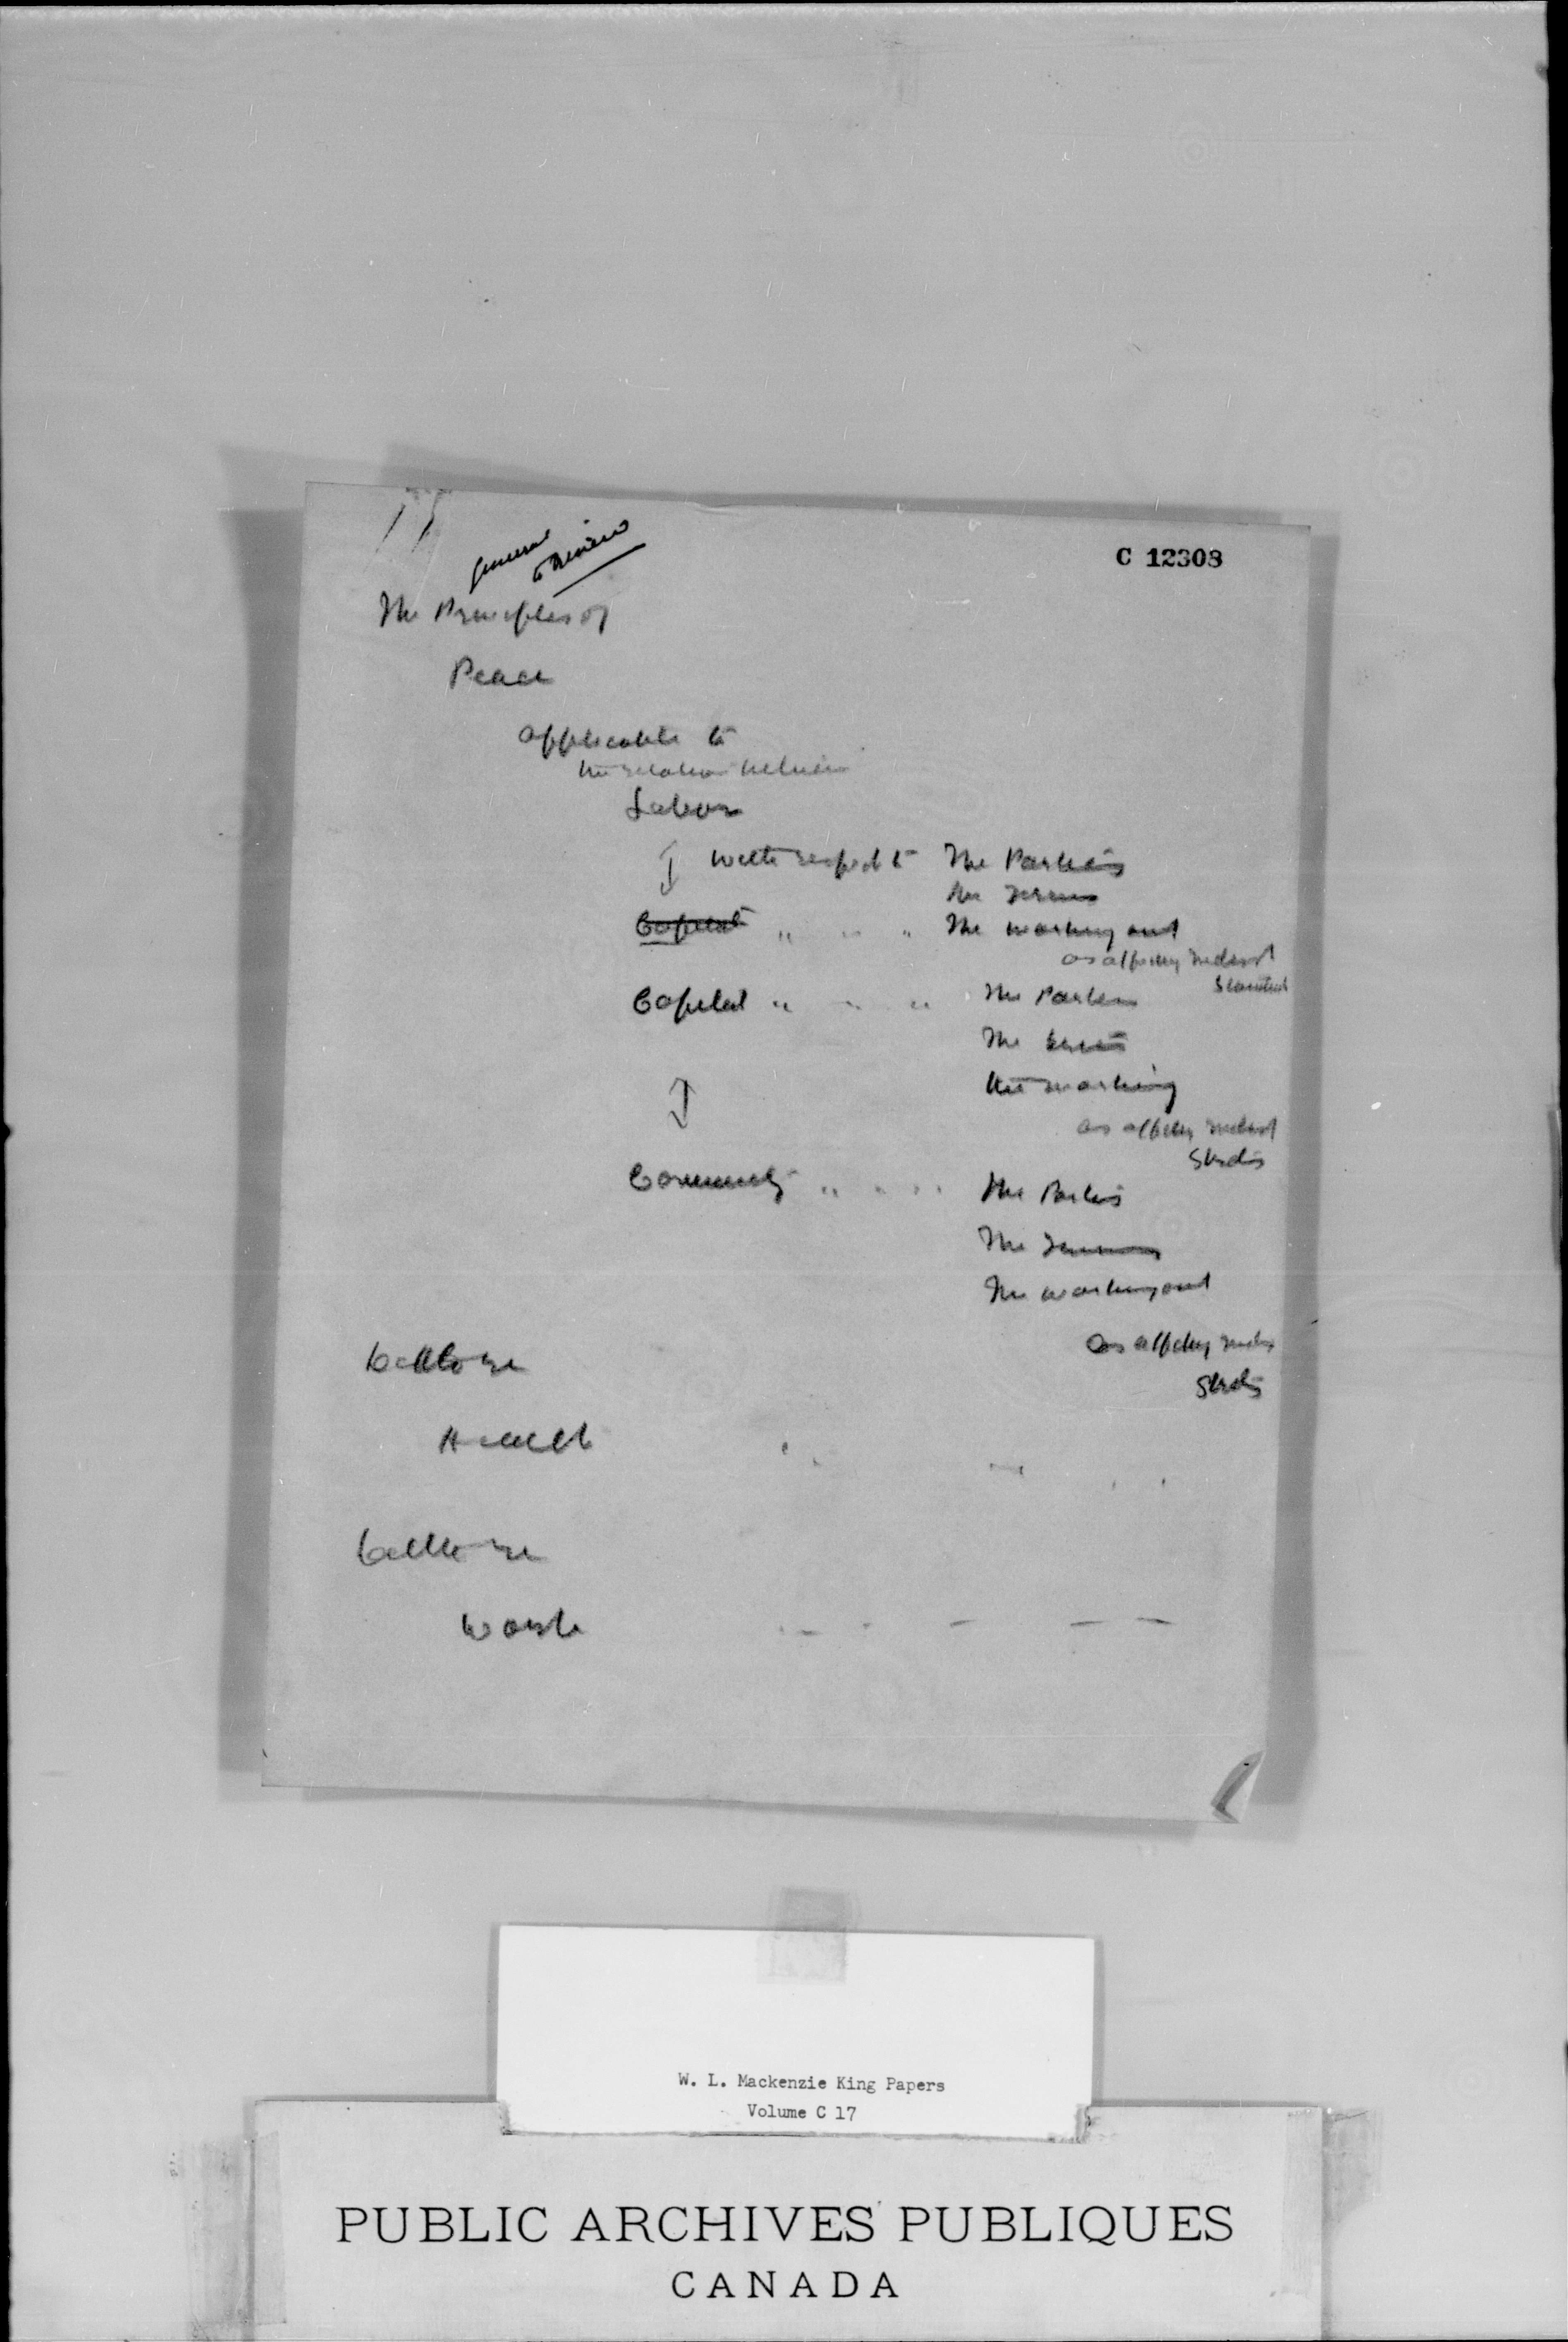 General
Review
C 12308
The Principles of
Peace
applicable to
the relation between
Labor
with respect to The Parties
the Terms
Capital " " " The working out
as affecting indust
Standards
Capital " " " The Parties
The
the working
as affecting indust
Stnds
Community " " " " The Parties
The Terms
The working out
as affecting indus
Stnds
Health
Work
W. L. Mackenzie King Papers
Volume C 17
PUBLIC ARCHIVES PUBLIQUES
CANADA